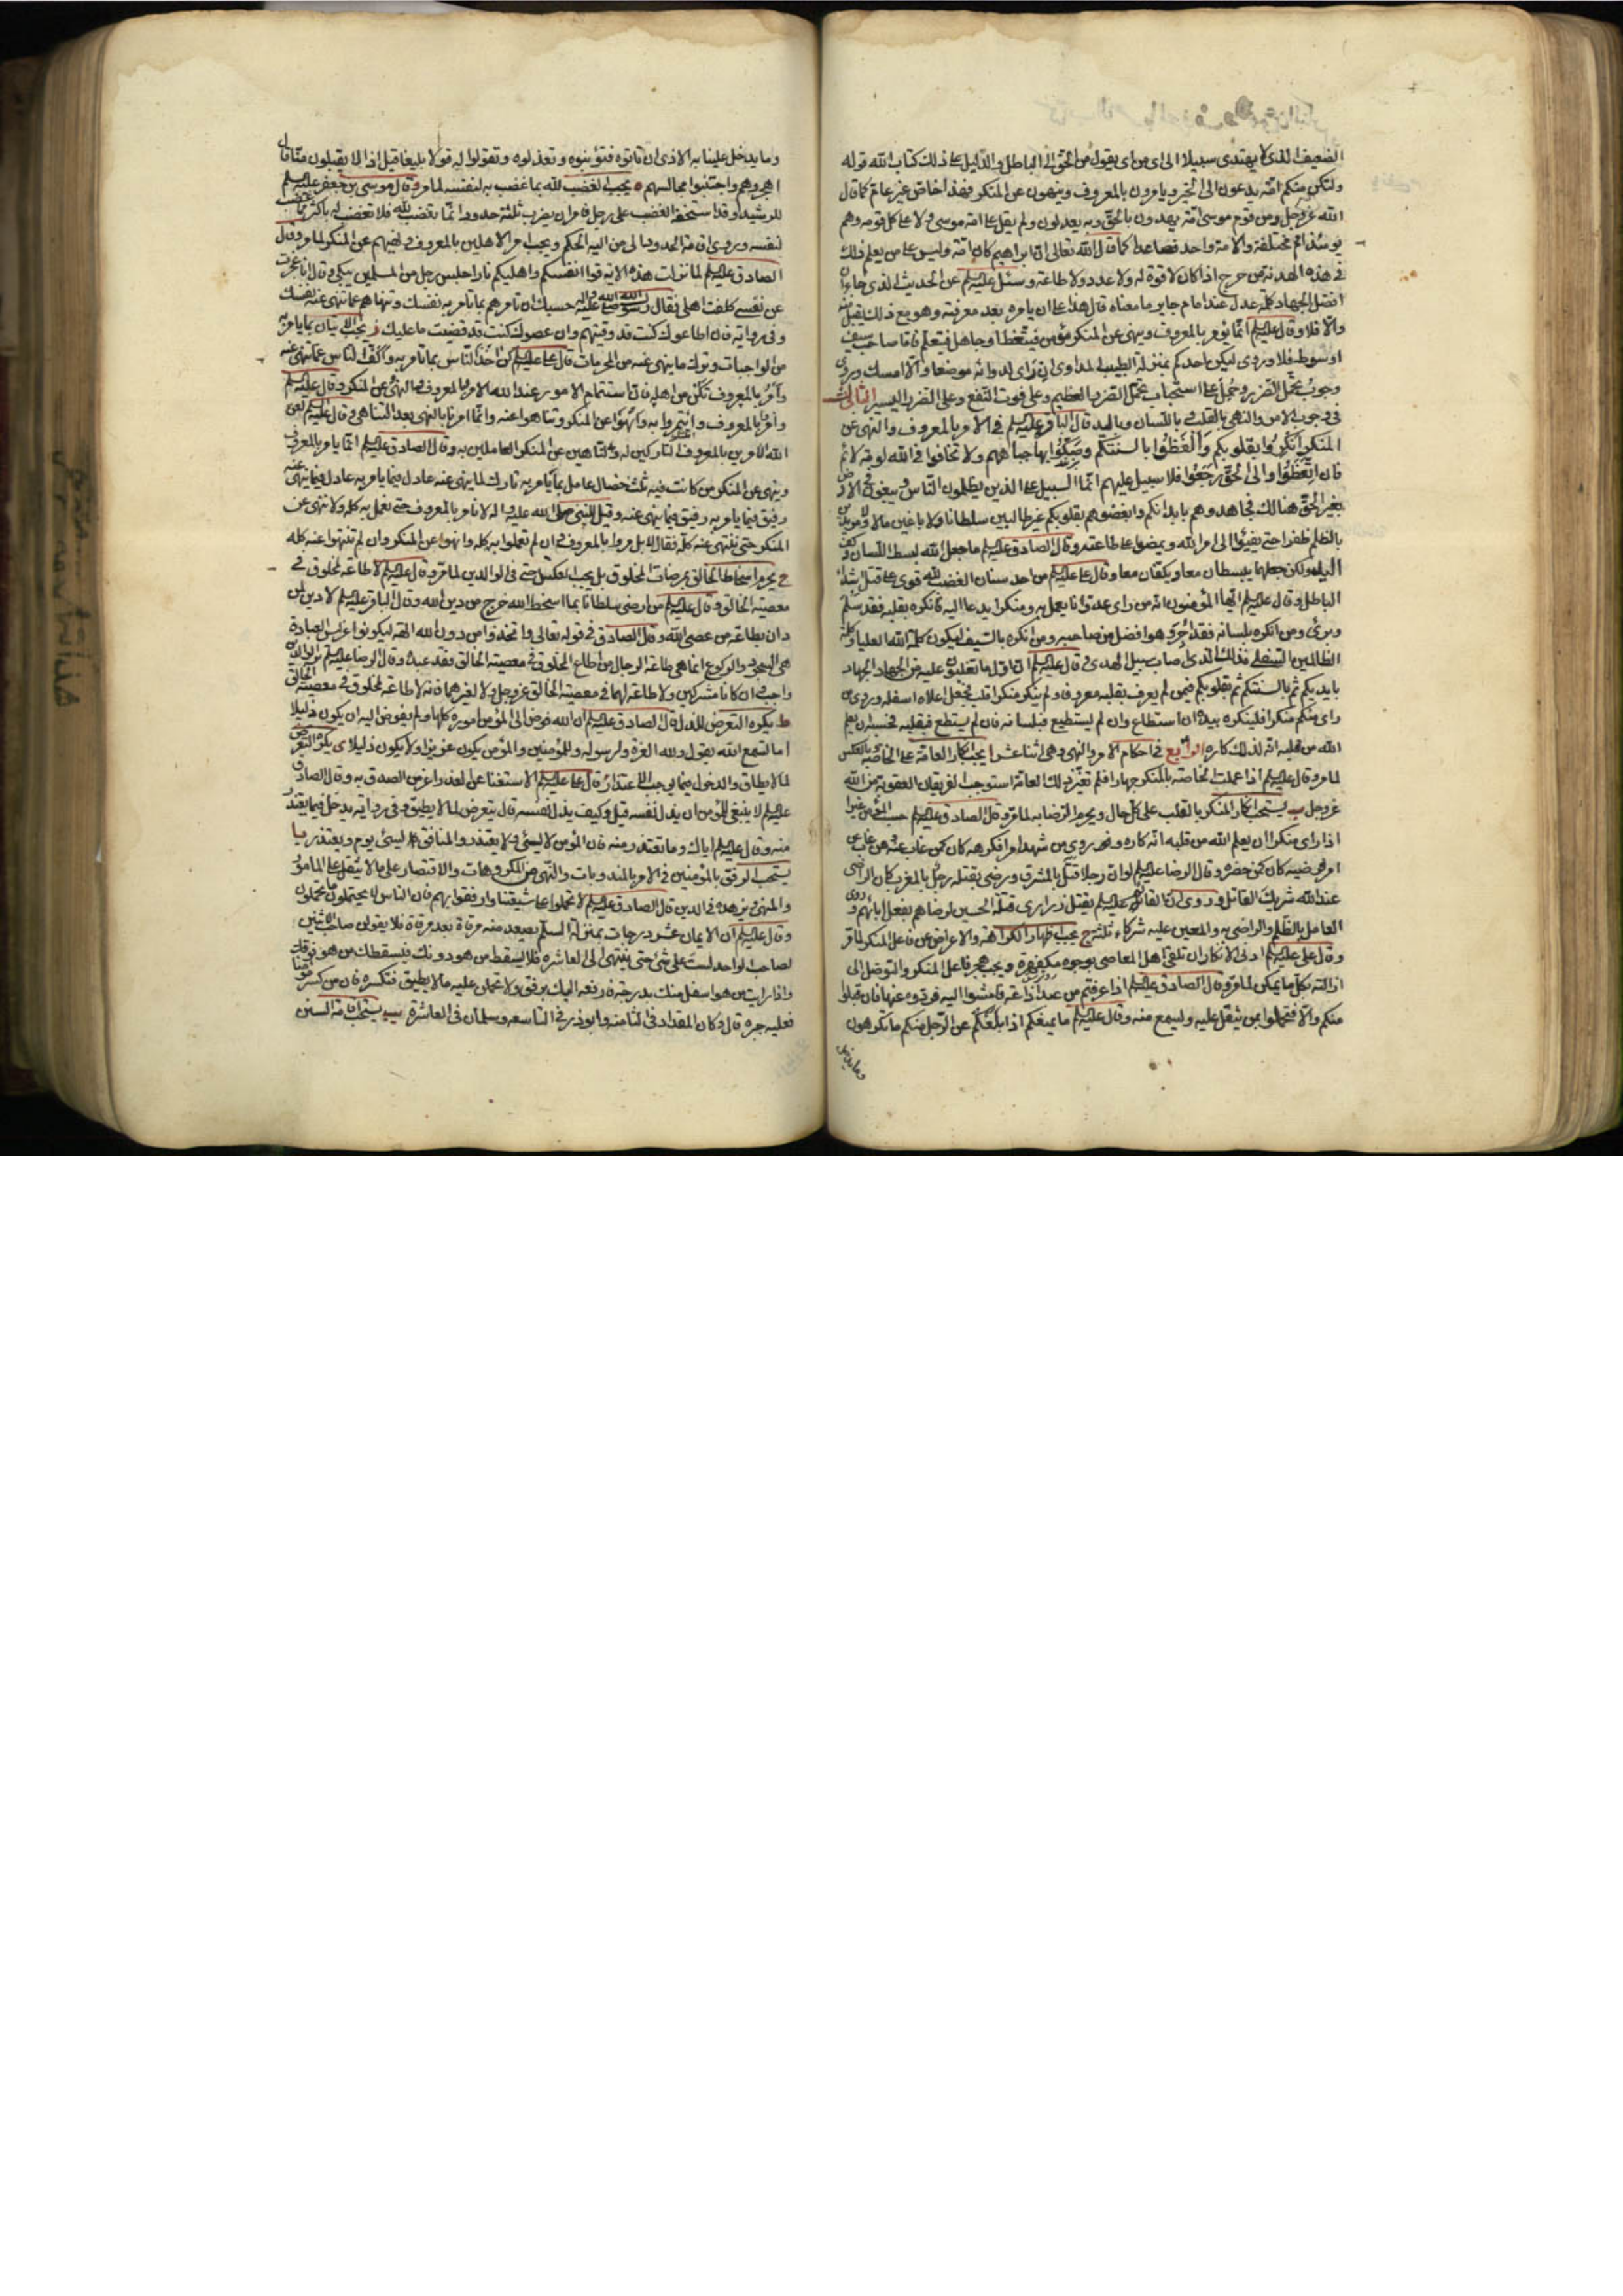 الضعيف الذي لا يهتدى سبيلا الى اى من اى يقول من الحق الى الباطل والدليل على ذلك كتاب الله قوله
ولتكن منكم امة يدعون الى الخير ويامرون بالمعروف وينهون عن المنكر فهذا خاص غير عام كما قال
الله عز وجل ومن قوم موسى امة يهدون بالحق وبه يعدلون ولم يقل على امة موسى ولا على كل قومه وهم
يومئذ امم مختلفة والامة واحد فصاعدا كما قال الله تعالى ان ابراهيم كان امة وليس على من يعلم ذلك
في هذه الهدنة من حرج اذا كان لا قوة له ولا عدد ولا طاعة وسئل عليه السلم عن الحديث الذي جاء ان
افضل الجهاد كلمة عدل عند امام جاير ما معناه قال هذا على ان يامره بعد معرفته وهو مع ذلك يقبل منه
والا فلا وقال عليه السلم انما يؤمر بالمعروف وينهى عن المنكر مؤمن فيتعظ او جاهل فيتعلم فاما صاحب سيف
او سوط فلا وروى ليكن احدكم بمنزلة الطبيب المداوى ان راى لدوائه موضعا والا امسك وروى
وجوب تحمل الضرر وحمل على استحباب تحمل الضرر العظيم وعلى فوت النفع وعلى الضرر اليسير الثالث
في وجوب الامر والنهى بالقلب ثم باللسان وباليد قال الباقر عليه السلم في الامر بالمعروف والنهى عن
المنكر انكروا بقلوبكم والفظوا بالسنتكم وصكوا بها جباههم ولا تخافوا في الله لومة لائم
فان اتعظوا والى الحق رجعوا فلا سبيل عليهم انما السبيل على الذين يظلمون الناس ويبغون في الارض
بغير الحق هنالك فجاهدوهم بابدانكم وابغضوهم بقلوبكم غير طالبين سلطانا ولا باغين مالا ولا مريدين
بالظلم ظفرا حتى يفيئوا الى امر الله ويمضوا على طاعته وقال الصادق عليه السلم ما جعل الله بسط اللسان وكف
اليد ولكن جعلهما يبسطان معا ويكفان معا وقال على عليه السلم من احد سنان الغضب لله قوى على قتل اشداء
الباطل وقال عليه السلم ايها المؤمنون انه من راى عدوانا يعمل به ومنكرا يدعا اليه فانكره بقلبه فقد سلم
وبرئ ومن انكره بلسانه فقد اجر وهو افضل من صاحبه ومن انكره بالسيف ليكون كلمة الله العليا وكلمة
الظالمين السفلى فذلك الذى اصاب سبيل الهدى وقال عليه السلم ان اول ما تغلبون عليه من الجهاد الجهاد
بايديكم ثم بالسنتكم ثم بقلوبكم فمن لم يعرف بقلبه معروفا ولم ينكر منكرا قلب فجعل اعلاه اسفله وروى من
راى منكم منكرا فلينكره بيده ان استطاع وان لم يستطيع فبلسانه فان لم يستطع فبقلبه فحسبه ان يعلم
الله من قلبه انه لذلك كاره الرابع في احكام الامر والنهى وهى اثنا عشر ا يجب انكار العامة على الخاصة وبالعكس
لما مر وقال عليه السلم اذا عملت الخاصة بالمنكر جهارا فلم تغير ذلك العامة استوجب الفريقان العقوبة من الله
عز وجل ب يستحب انكار المنكر بالقلب على كل حال ويحرم الرضا به لما مر وقال الصادق عليه السلم حسب المؤمن غيرا
اذا راى منكرا ان يعلم الله من قلبه انه كاره وروى من شهد امرا فكرهه كان كمن غاب عنه ومن غاب عن
امر فرضيه كان كمن حضره وقال الرضا عليه السلم لو ان رجلا قتل بالمشرق ورضى بقتله رجل بالمغرب كان الراضى
عند الله شريك القاتل وروى ان القائم عليه السلم يقتل ذرارى قتلة الحسين لرضاهم بفعل ابائهم وروى
العامل بالظلم والراضى به والمعين عليه شركاء ثلثة ج يجب اظهار الكراهة والاعراض عن فاعل المنكر لما مر
وقال على عليه السلم ادنى الانكار ان تلقى اهل المعاصى بوجوه مكفهرة ويجب هجر فاعل المنكر والتوصل الى
ازالته بكل ما يمكن لما مر وقال الصادق عليه السلم اذا عرفتم من عبد اذاعة فامشوا اليه فردوه عنها فان قبلوا
منكم والا فتحملوا بمن يثقل عليه ويسمع منه وقال عليه السلم ما يمنعكم اذا بلغكم عن الرجل منكم ما تكرهون
وما يدخل
وما يدخل علينا به الاذى ان تاتوه فتؤنبوه وتعذلوه وتقولوا له قولا بليغا قيل اذا لا يقبلون منا قال
اهجروهم واجتنبوا مجالسهم ه يجب الغضب لله بما غضب به لنفسه لما مر وقال موسى بن جعفر عليه السلم
للرشيد وقد استخفه الغضب على رجل فامر ان يضرب ثلثة حدود انما تغضب لله فلا تغضب له باكثر مما غضب
لنفسه وروى اقامة الحدود الى من اليه الحكم ويجب امر الاهلين بالمعروف ونهيهم عن المنكر لما مر وقال
الصادق عليه السلم لما نزلت هذه الاية قوا انفسكم واهليكم نارا جلس رجل من المسلمين يبكى وقال انا عجزت
عن نفسي كلفت اهلى فقال رسول الله صلى الله عليه واله حسبك ان تامرهم بما تامر به نفسك وتنهاهم عما تنهى عنه نفسك
وفي رواية فان اطاعوك كنت قد وقيتهم وان عصوك كنت قد قضيت ما عليك ز يجب الاتيان بما يامر به
من الواجبات وترك ما ينهى عنه من المحرمات قال على عليه السلم كن اخذ الناس بما تامر به واكف الناس عما تنهى عنه
وامر بالمعروف تكن من اهله فان استتمام الامور عند الله الامر بالمعروف والنهى عن المنكر وقال عليه السلم
وامروا بالمعروف وائتمروا به وانهوا عن المنكر وتناهوا عنه وانما امرنا بالنهى بعد التناهى وقال عليه السلم لعن
الله الامرين بالمعروف التاركين له والناهين عن المنكر العاملين به وقال الصادق عليه السلم انما يامر بالمعروف
وينهى عن المنكر من كانت فيه ثلث خصال عامل بما يامر به تارك لما ينهى عنه عادل فيما يامر به عادل فيما ينهى عنه
رفيق فيما يامر به رفيق فيما ينهى عنه وقيل للنبى صلى الله عليه واله لا نامر بالمعروف حتى نعمل به كله ولا ننهى عن
المنكر حتى ننتهى عنه كله فقال لا بل مروا بالمعروف وان لم تعملوا به كله وانهوا عن المنكر وان لم تنتهوا عنه كله
ح يحرم اسخاط الخالق بمرضات المخلوق بل يجب العكس حتى في الوالدين لما مر وقال عليه السلم لا طاعة لمخلوق في
معصية الخالق وقال عليه السلم من ارضى سلطانا بما اسخط الله خرج من دين الله وقال الباقر عليه السلم لا دين لمن
دان بطاعة من عصى الله وقال الصادق في قوله تعالى واتخذوا من دون الله الهة ليكونوا عزا ليس العبادة
هى السجود والركوع انما هى طاعة الرجال من اطاع المخلوق في معصية الخالق فقد عبده وقال الرضا عليه السلم بر الوالدين
واجب وان كانا مشركين ولا طاعة لهما في معصية الخالق عز وجل ولا لغيرهما فانه لا طاعة لمخلوق في معصية الخالق
ط يكره التعرض للذل قال الصادق عليه السلم ان الله فوض الى المؤمن اموره كلها ولم يفوض اليه ان يكون ذليلا
اما تسمع الله يقول ولله العزة ولرسوله وللمؤمنين والمؤمن يكون عزيزا ولا يكون ذليلا ى يكره التعرض
لما لا يطاق والدخول فيما يوجب الاعتذار قال على عليه السلم الاستغنا عن العذر اعز من الصدق به وقال الصادق
عليه السلم لا ينبغى للمؤمن ان يذل نفسه قيل وكيف يذل نفسه قال يتعرض لما لا يطيق وفي رواية يدخل فيما يعتذر
منه وقال عليه السلم اياك وما تعتذر منه فان المؤمن لا يسئ ولا يعتذر والمنافق كل يوم يسئ ويعتذر يا
يستحب الرفق بالمؤمنين في الامر بالمندوبات والنهى عن المكروهات والاقتصار على ما لا يثقل على المامور
والمنهى ويزهده في الدين قال الصادق عليه السلم لا تحملوا على شيعتنا وارفقوا بهم فان الناس لا يحتملون ما تحملون
وقال عليه السلم ان الايمان عشر درجات بمنزلة السلم يصعد منه مرقاة بعد مرقاة فلا يقولن صاحب الاثنين
لصاحب الواحد لست على شئ حتى ينتهى الى العاشرة فلا يسقط من هو دونك فيسقطك من هو فوقك
واذا رايت من هو اسفل منك بدرجة فارفعه اليك برفق ولا تحملن عليه ما لا يطيق فتكسره فان من كسر مؤمنا
فعليه جبره قال وكان المقداد في الثامنه وابو ذر في التاسعه وسلمان في العاشرة يب يستحب اقامة السنن